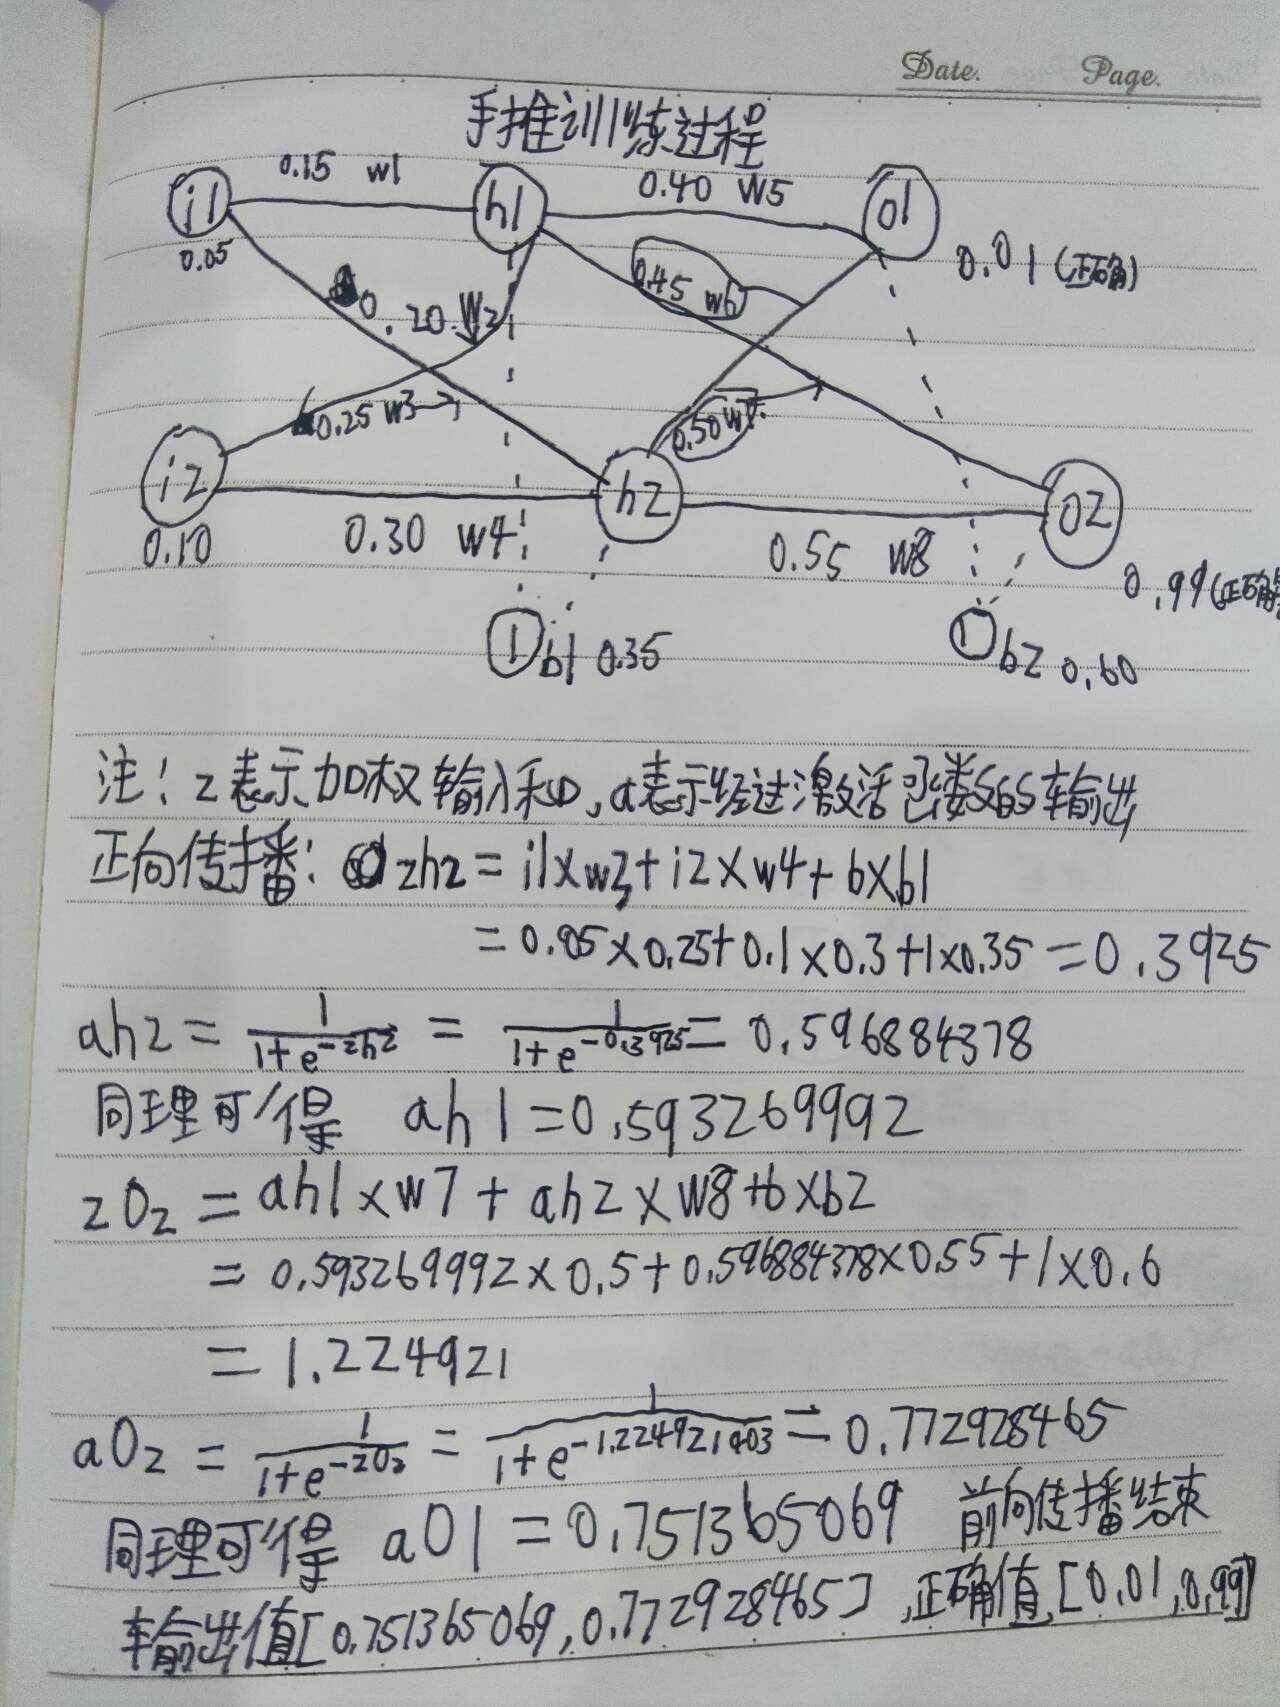 Date. Page.
手推训练过程
0.15 w1
0.40 w5
i1
h1
o1
0.05
0.01 (正确)
0.20 w2
0.45 w6
0.25 w3
0.50 w7
i2
h2
o2
0.10
0.30 w4
0.55 w8
0.99 (正确
1 b1 0.35
1 b2 0.60
注! z表示加权输入和,a表示经过激活函数的输出
正向传播: zh2 = i1×w3+i2×w4+b×b1
= 0.05×0.25+0.1×0.3+1×0.35 = 0.3925
ah2 = 1/(1+e^-zh2) = 1/(1+e^-0.3925) = 0.596884378
同理可得 ah1=0.593269992
zO2 = ah1×w7+ah2×w8+b×b2
= 0.593269992×0.5+0.596884378×0.55+1×0.6
= 1.224921
aO2 = 1/(1+e^-zO2) = 1/(1+e^-1.224921403) = 0.772928465
同理可得 aO1 = 0.751365069 前向传播结束
输出值[0.751365069,0.772928465],正确值[0.01,0.99]